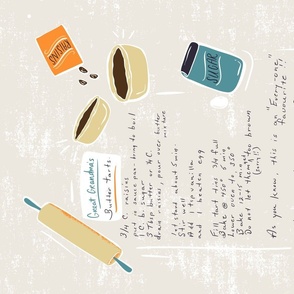 RAISINS
SUGAR
Great Grandma's
Butter Tarts.
3/4 c. raisins
put in sauce pan bring to boil
1 c. b. sugar
3 Tbsp butter or 1/4 C.
drain raisins, pour over butter
mixture
Let stand about 5 min.
Stir well
Add 1 tsp vanilla
and 1 beaten egg
Fill tart tins 3/4 full
Bake @ 450° 5 min
Lower oven to 350°
Bake 12-15 min
Do not let them get too brown
(runny!!)
As you know, this is an "Every-one,"
favourite!!